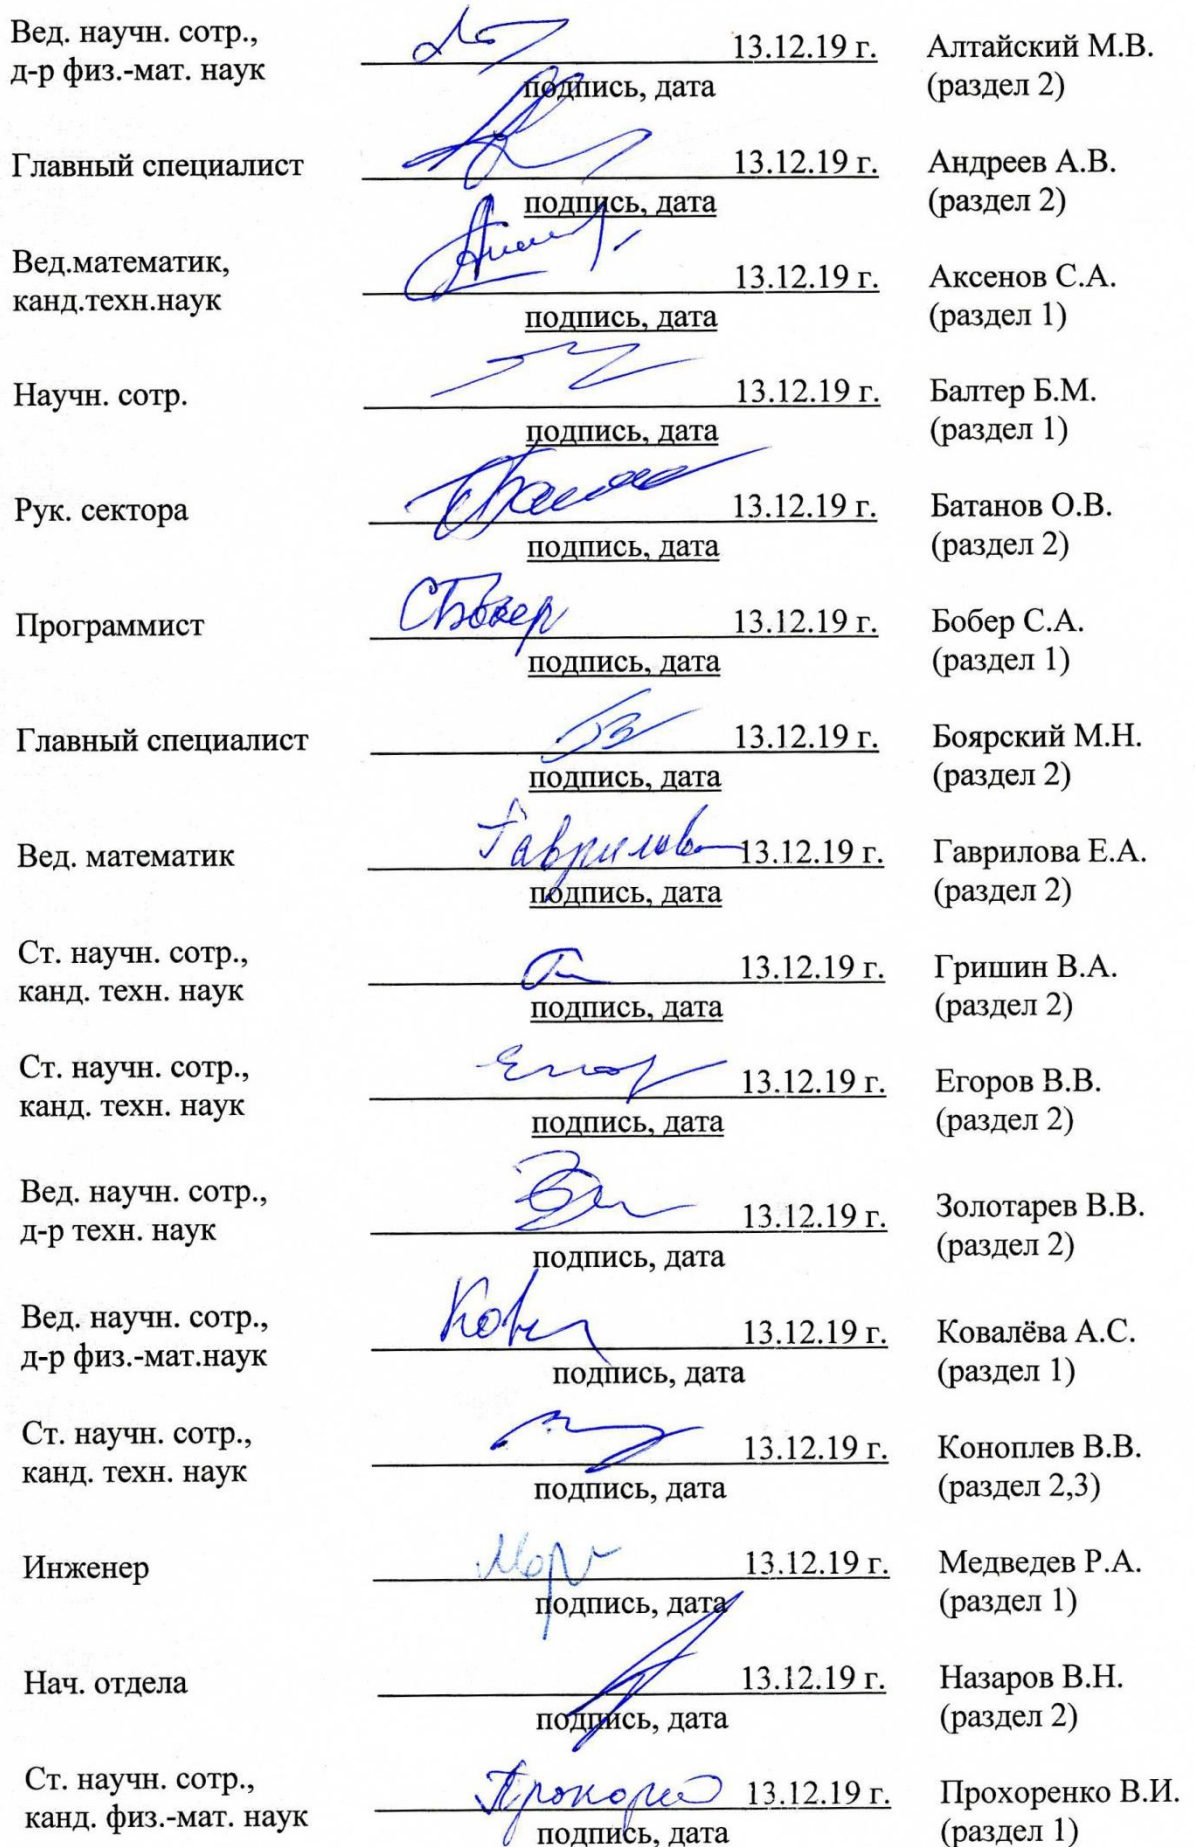 Вед. научн. сотр.,
д-р физ.-мат. наук
13.12.19 г.
подпись, дата
Алтайский М.В.
(раздел 2)
Главный специалист
13.12.19 г.
подпись, дата
Андреев А.В.
(раздел 2)
Вед.математик,
канд.техн.наук
13.12.19 г.
подпись, дата
Аксенов С.А.
(раздел 1)
Научн. сотр.
13.12.19 г.
подпись, дата
Балтер Б.М.
(раздел 1)
Рук. сектора
13.12.19 г.
подпись, дата
Батанов О.В.
(раздел 2)
Программист
СБобер 13.12.19 г.
подпись, дата
Бобер С.А.
(раздел 1)
Главный специалист
13.12.19 г.
подпись, дата
Боярский М.Н.
(раздел 2)
Вед. математик
Гаврилова 13.12.19 г.
подпись, дата
Гаврилова Е.А.
(раздел 2)
Ст. научн. сотр.,
канд. техн. наук
13.12.19 г.
подпись, дата
Гришин В.А.
(раздел 2)
Ст. научн. сотр.,
канд. техн. наук
13.12.19 г.
подпись, дата
Егоров В.В.
(раздел 2)
Вед. научн. сотр.,
д-р техн. наук
13.12.19 г.
подпись, дата
Золотарев В.В.
(раздел 2)
Вед. научн. сотр.,
д-р физ.-мат.наук
13.12.19 г.
подпись, дата
Ковалёва А.С.
(раздел 1)
Ст. научн. сотр.,
канд. техн. наук
13.12.19 г.
подпись, дата
Коноплев В.В.
(раздел 2,3)
Инженер
13.12.19 г.
подпись, дата
Медведев Р.А.
(раздел 1)
Нач. отдела
13.12.19 г.
подпись, дата
Назаров В.Н.
(раздел 2)
Ст. научн. сотр.,
канд. физ.-мат. наук
13.12.19 г.
подпись, дата
Прохоренко В.И.
(раздел 1)